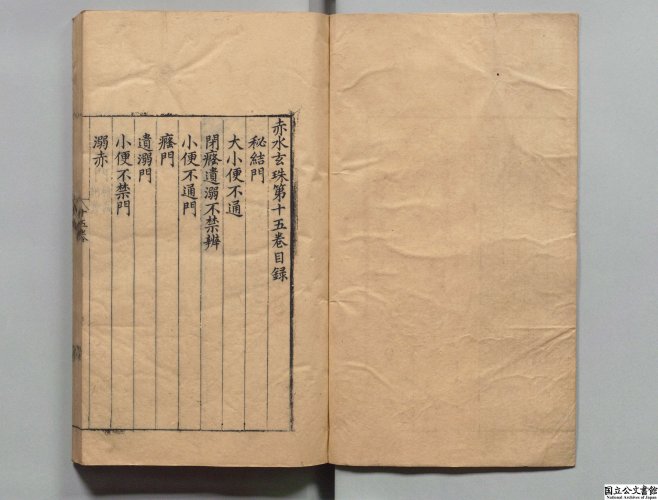 赤水玄珠第十五卷目録
秘結門
大小便不通
閉癃遺溺不禁辨
小便不通門
癃門
遺溺門
小便不禁門
溺赤
十五卷
国立公文書館
National Archives of Japan